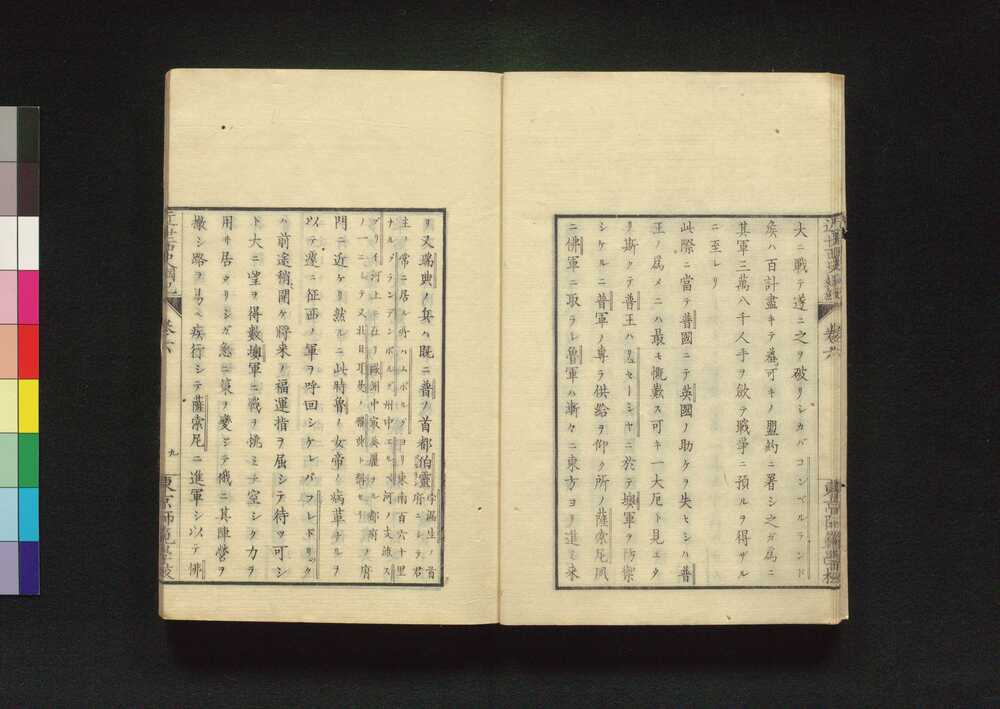 大ニ戰テ遂ニ之ヲ破リシカバコンベルランド
矦ハ百計盡キテ墓可キノ盟約ニ署シ之ガ爲ニ
其軍三萬八千人手ヲ歛テ戰爭ニ預ルヲ得ザル
ニ至レリ
此際ニ當テ普國ニテ英國ノ助ケヲ失ヒシハ普
王ノ爲メニハ最モ慨歎ス可キ一大厄ト見エタ
リ斯クテ普王ハリュセーシャニ於テ墺軍ヲ防禦
シケルニ普軍ノ專ラ供給ヲ仰ク所ノ薩索尼夙
ニ佛軍ニ取ラレ魯軍ハ漸々ニ東方ヨリ進ミ来
リ又瑞典ノ兵ハ既ニ普ノ首都伯靈
門ニ近ケリ然ルニ此時魯ノ女帝ノ病革ナルヲ
以テ遽ニ征西ノ軍ヲ呼回シケレバフレドリック
ハ前途稍開ケ將来ノ福運指ヲ屈シテ待ツ可シ
ト大ニ望ヲ得數墺軍ニ戰ヲ挑ミテ空シク力ヲ
用ヰ居タリシガ急ニ策ヲ變シテ俄ニ其陣營ヲ
撤シ路ヲ易ヘ疾行シテ薩索尼ニ進軍シ以テ佛
卷六
九
東京師範學校